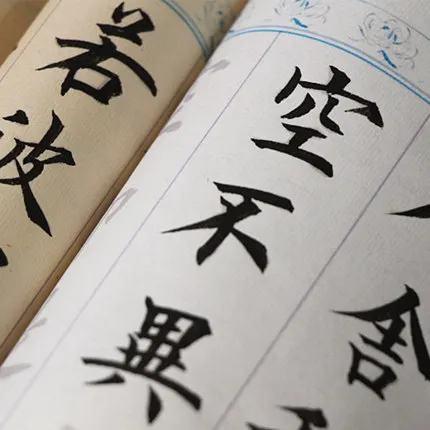 舍
空不異
若波